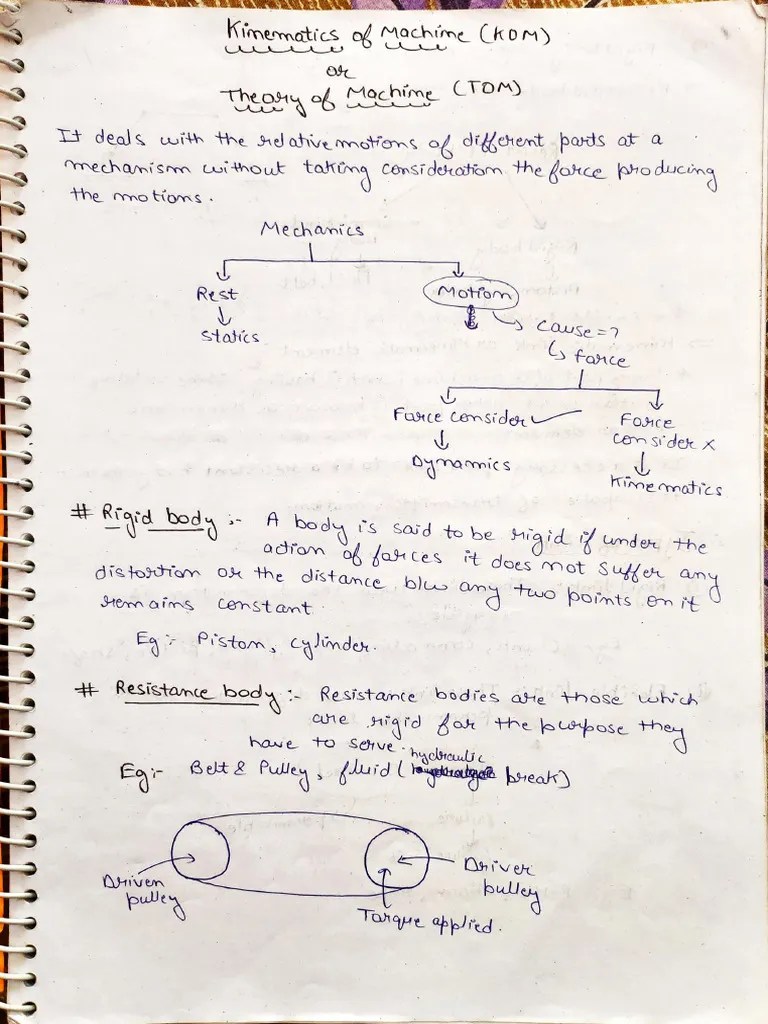 Kinematics of Machine (KOM)
or
Theory of Machine (TOM)
It deals with the relative motions of different parts at a
mechanism without taking consideration the force producing
the motions.
Mechanics
Rest
Motion
statics
Cause = ?
force
Force consider ✓
Force
consider ×
Dynamics
Kinematics
# Rigid body :- A body is said to be rigid if under the
action of forces it does not suffer any
distortion or the distance b/w any two points on it
remains constant.
Eg :- Piston, cylinder.
# Resistance body :- Resistance bodies are those which
are rigid for the purpose they
have to serve.
hydraulic
Eg :- Belt & Pulley, fluid ( break)
Driven
pulley
Driver
pulley
Torque applied.